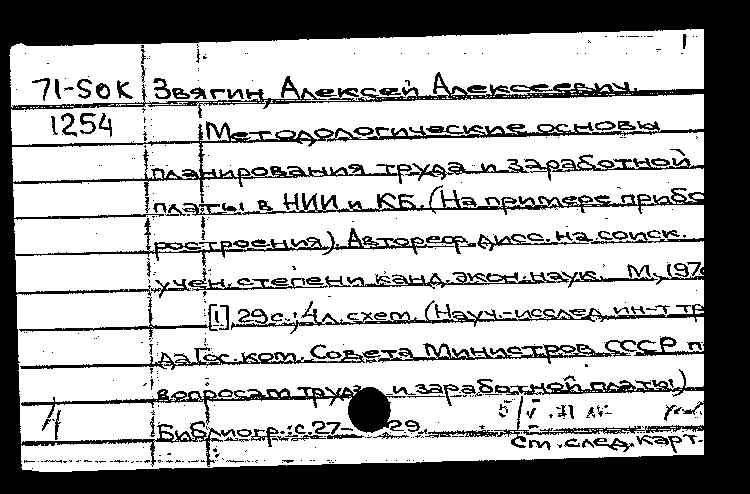 71-SOK Звягин, Алексей Алексеевич.
1254 Методологические основы
планирования труда и заработной
платы в НИИ и КБ. (На примере прибо
ростроения). Автореф. дисс. на соиск.
учен. степени канд. экон. наук. М., 197
[1], 29 с.; 4 л. схем. (Науч.-исслед. ин-т тр
да Гос. ком. Совета Министров СССР п
вопросам труда и заработной платы)
4 Библиогр.: с. 27-29.
см. след. карт.